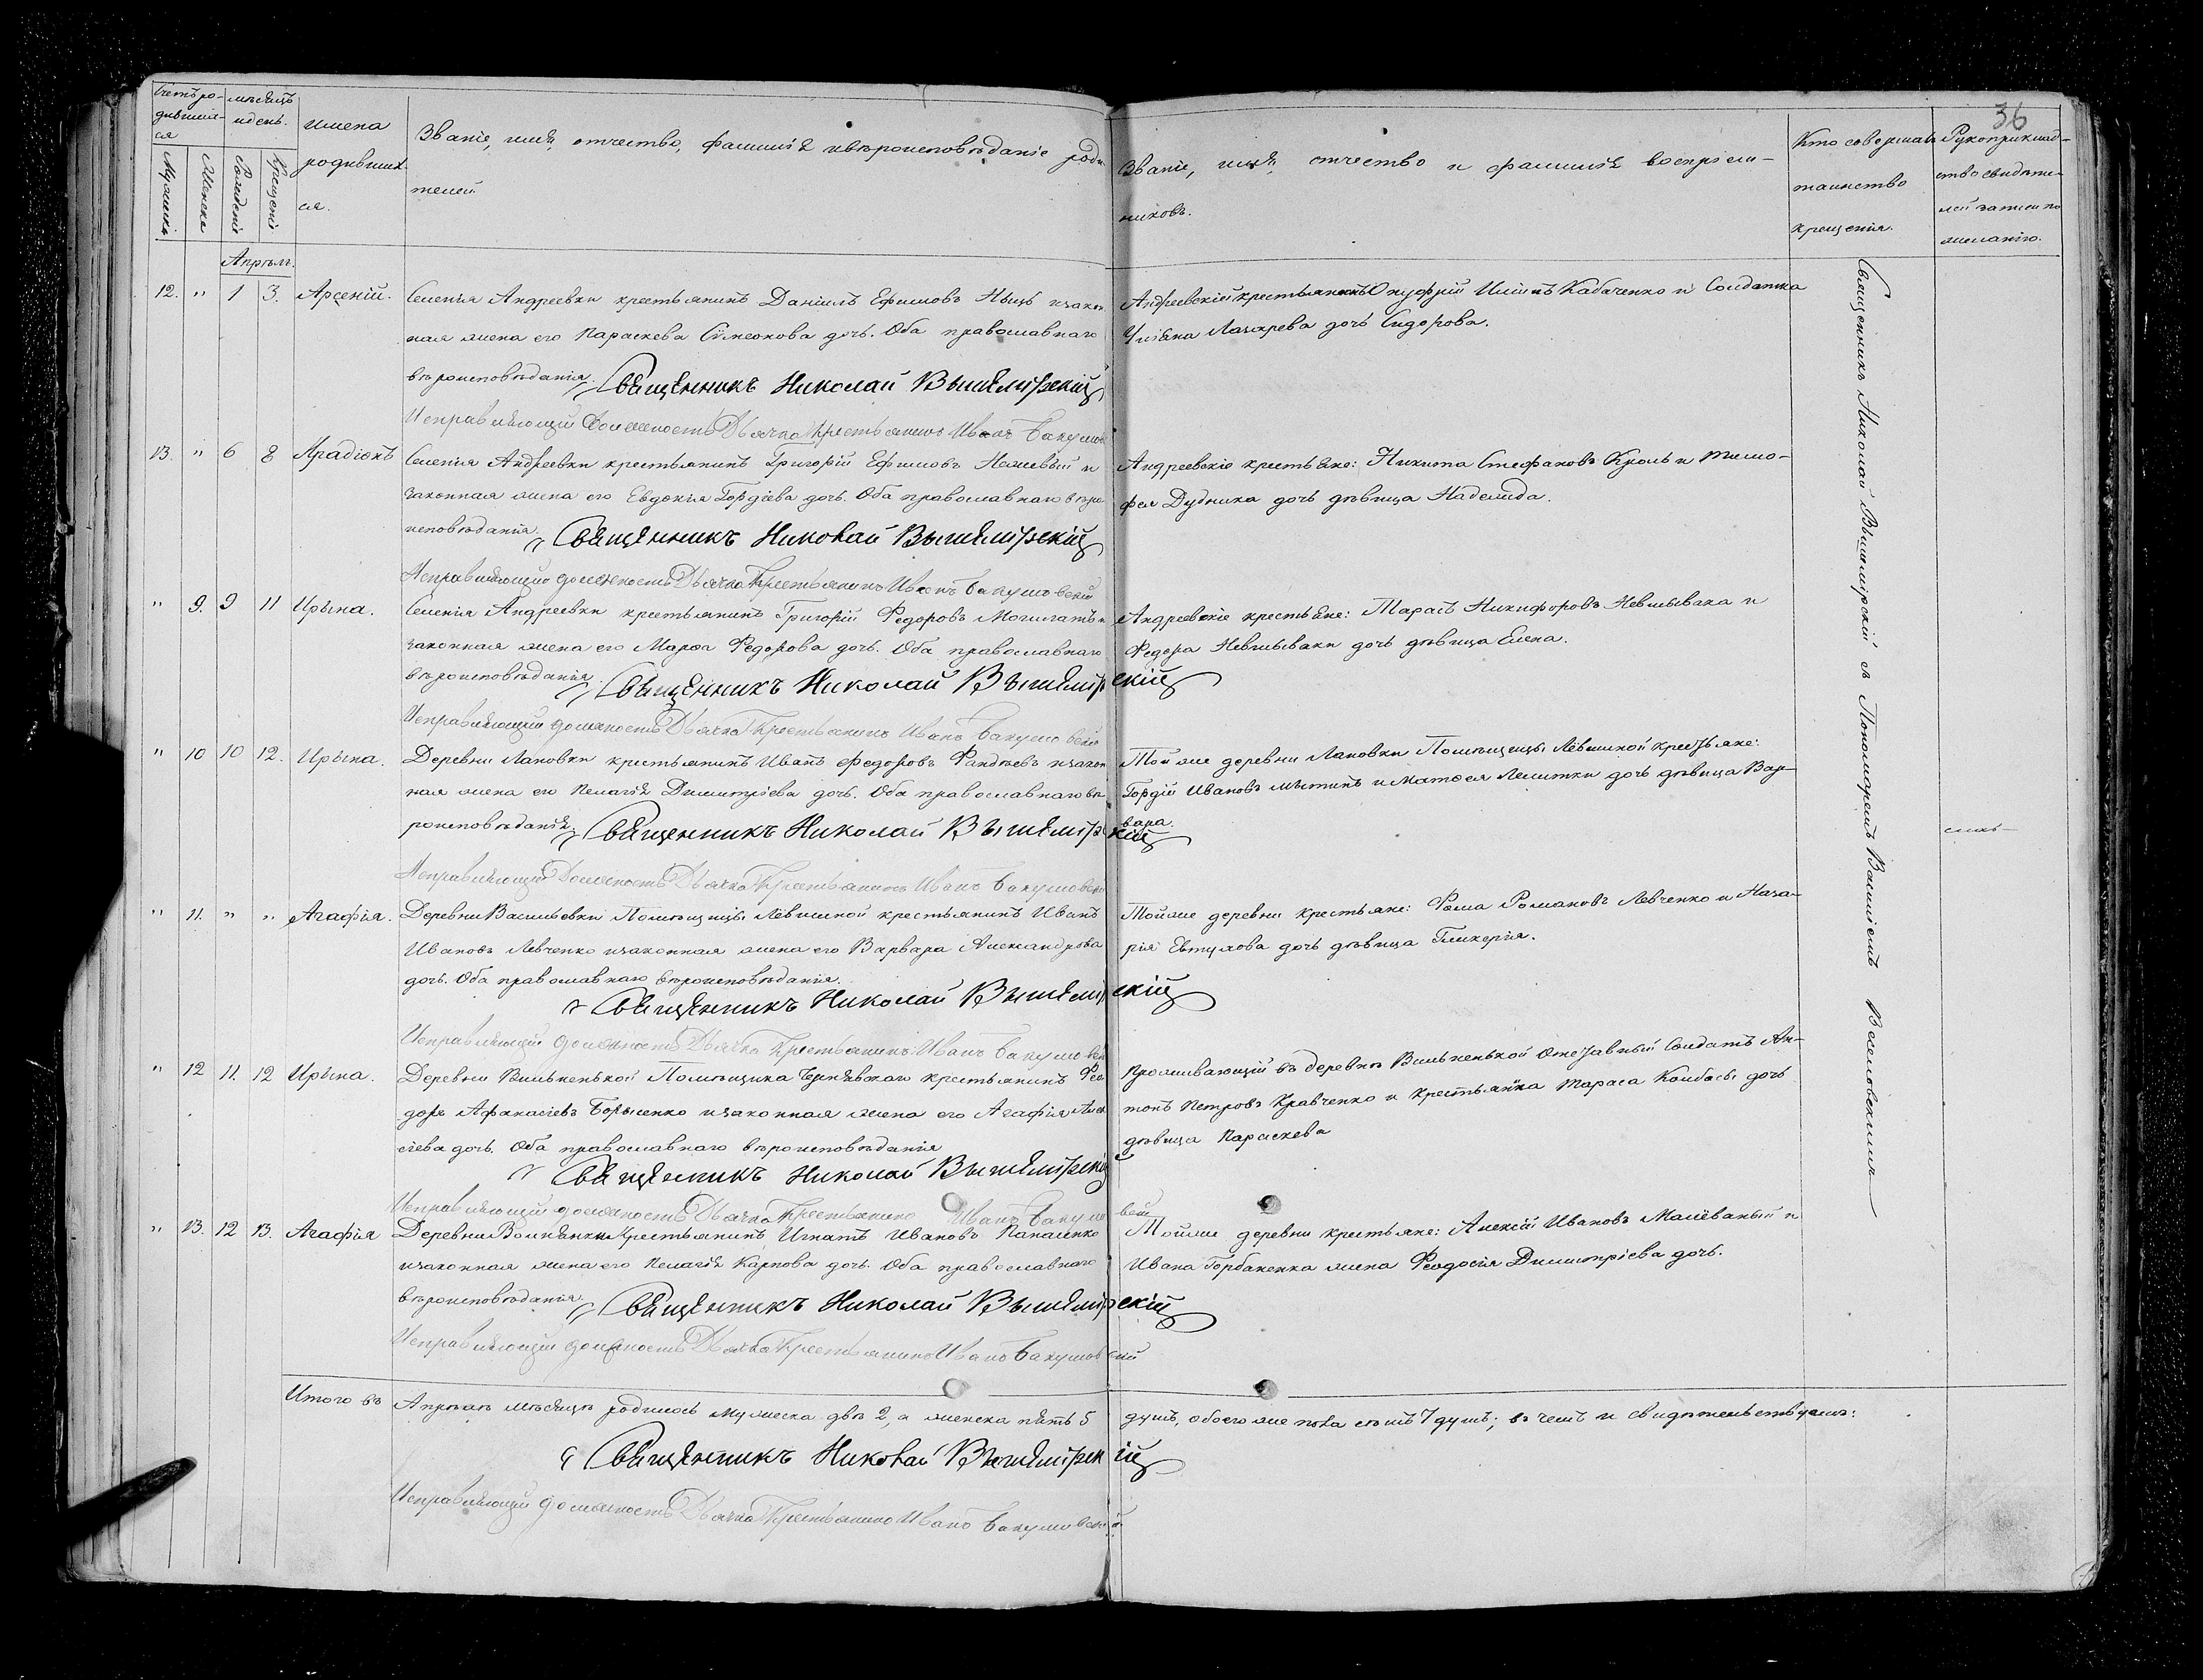 36
Счетъ ро-
дившихъ-
ся
Мужеска
Женска
мѣсяцъ
и день.
Рожденія
Крещенія
имена
родивших-
ся.
Званіе, имя, отчество, фамилія и вѣроисповѣданіе роди-
телей
Званіе, имя, отчество и фамилія воспріем-
никовъ.
Кто совершалъ
таинство
крещенія.
Рукоприклад-
ство свидѣте-
лей записи по
желанію.
Апрѣль.
12. " 1 3. Арсеній.
Селенія Андреевки крестьянинъ Даніилъ Ефимовъ и закон-
ная жена его Параскева Сѵмеонова дочь. Оба православнаго
вѣроисповѣданія.
Священникъ Николай Вышемірскій
Исправляющій должность Дьячка Крестьянинъ Иванъ Бакумов
Андреевскій крестьянинъ Онуфрій Ильинъ Кабаченко и Солдатка
Уліяна Лазарева дочь Сидорова.
13. " 6 8 Арадіонъ
Селенія Андреевки крестьянинъ Григорій Ефимовъ и
законная жена его Евдокія Гордіева дочь. Оба православнаго вѣро
исповѣданія.
Священникъ Николай Вышемірскій
Исправляющій должность Дьячка Крестьянинъ Иванъ Бакумовскій
Андреевскіе крестьяне: Никита Стефановъ Кроль и Тимо-
фея Дудника дочь дѣвица Надежда.
" 9. 9 11 Ирына.
Селенія Андреевки крестьянинъ Григорій Федоровъ Могилатъ и
законная жена его Марѳа Федорова дочь. Оба православнаго
вѣроисповѣданія
Священникъ Николай Вышемірскій
Исправляющій должность Дьячка Крестьянинъ Иванъ Бакумовскій
Андреевскіе крестьяне: Тарасъ Никифоровъ Невмывака и
Федора Невмываки дочь дѣвица Елена.
" 10 10 12. Ирына.
Деревни Лановки крестьянинъ Иванъ Федоровъ и закон
ная жена его Пелагія Димитріева дочь. Оба православнаго вѣ-
роисповѣданія.
Священникъ Николай Вышемірскій
Исправляющій Должность Дьячка Крестьянинъ Иванъ Бакумовскій
Той же деревни Лановки Помѣщицы Лёвшиной крестьяне:
Гордій Ивановъ и Матѳея дочь дѣвица Вар-
вара.
" 11. " " Агафія.
Деревни Васильевки Помѣщицы Лёвшиной крестьянинъ Иванъ
Ивановъ Левченко и законная жена его Варвара Александрова
дочь. Оба православнаго вѣроисповѣданія.
Священникъ Николай Вышемірскій
Исправляющій должность Дьячка Крестьянинъ Иванъ Бакумовскій
Той же деревни крестьяне: Фома Романовъ Левченко и Наза-
рія Евтухова дочь дѣвица Гликерія.
" 12 11. 12 Ирына.
Деревни Вильненькой Помѣщика Чернявскаго крестьянинъ Фео
доръ Афанасіевъ Борысенко и законная жена его Агафія Алек
сіева дочь. Оба православнаго вѣроисповѣданія
Священникъ Николай Вышемірскій
Исправляющій должность Дьячка Крестьянинъ Иванъ Бакумовскій
Проживающій въ деревнѣ Вильненькой Отставный Солдатъ Ан-
тонъ Петровъ Кравченко и Крестьянка Тараса Колбасы дочь
дѣвица Параскева
" 13. 12 13. Агафія
Деревни Волнянки Крестьянинъ Игнатъ Ивановъ Панасенко
и законная жена его Пелагія Карпова дочь. Оба православнаго
вѣроисповѣданія.
Священникъ Николай Вышемірскій
Исправляющій должность Дьячка Крестьянинъ Иванъ Бакумовскій
Той же деревни крестьяне: Алексій Ивановъ Малёваный и
Ивана Горбаненка жена Феодосія Димитріева дочь.
Священникъ Николай Вышемірскій съ Пономаремъ Василіемъ Веселовскимъ
Итого въ Апрѣлѣ мѣсяцѣ родилось мужеска двѣ 2, а женска пять 5 душъ, обоего же пола семь 7 душъ; въ чемъ и свидѣтельствуемъ:
Священникъ Николай Вышемірскій
Исправляющій должность Дьячка Крестьянинъ Иванъ Бакумовскій